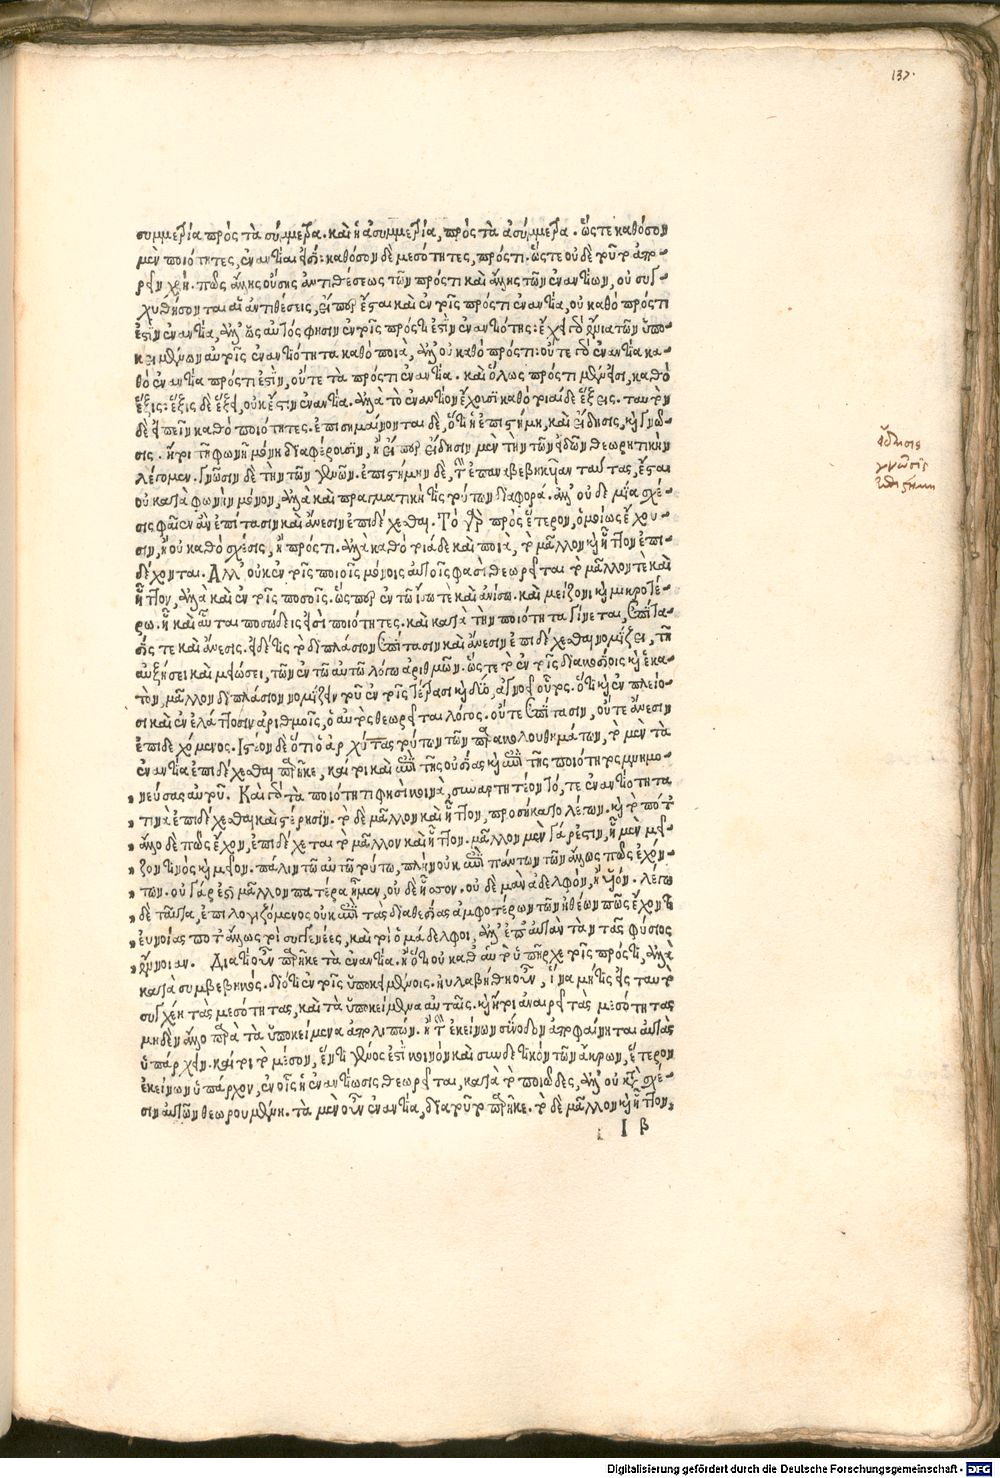 137.
συμμετρία πρὸς τὰ σύμμετρα. καὶ ἡ ἀσυμμετρία, πρὸς τὰ ἀσύμμετρα. ὥστε καθόσον
μὲν ποιότητες, ἐναντίαι εἰσί: καθόσον δὲ μεσότητες, πρόςτι. ὥστε οὐδὲ τοῦτο ἀπο-
ρεῖν χρή. πῶς ἄλλης οὔσης ἀντιθέσεως τῶν πρόςτι καὶ ἄλλης τῶν ἐναντίων, οὐ συγ-
χυθήσονται αἱ ἀντιθέσεις, εἴπερ ἔσται καὶ ἐν τοῖς πρόςτι ἐναντία, οὐ καθὸ πρόςτι
ἐστὶν ἐναντία, ἀλλ' ὡς αὐτός φησιν ἐν τοῖς πρόςτι ἐστὶν ἐναντιότης: ἔχει γὰρ ἔνια τῶν ὑπο-
κειμένων αὐτοῖς ἐναντιότητα καθὸ ποιὰ, ἀλλ' οὐ καθὸ πρόςτι: οὔτε γὰρ ἐναντία κα-
θὸ ἐναντία πρόςτι ἐστὶν, οὔτε τὰ πρόςτι ἐναντία. καὶ ὅλως πρόςτι μέν εἰσι, καθὸ
ἕξις: ἕξις δὲ ἕξει, οὐκ ἔστιν ἐναντία. ἀλλὰ τὸ ἐναντίον ἔχουσι καθὸ τοιαίδε ἕξεις. ταυτὸν
δὲ εἰπεῖν καθὸ ποιότητες. ἐπισημαίνονται δὲ, ὅτι ἡ ἐπιστήμη, καὶ εἴδησις, καὶ γνῶ-
σις. ἤτοι τῇ φωνῇ μόνῃ διαφέρουσιν, ἢ εἴπερ εἴδησιν μὲν τὴν τῶν εἰδῶν θεωρητικὴν
λέγομεν. γνῶσιν δὲ τὴν τῶν γενῶν. ἐπιστήμην δὲ, τὴν ἐπαναβεβηκυῖαν ταύτας, ἔσται
οὐ κατὰ φωνὴν μόνον, ἀλλὰ καὶ πραγματική τις τούτων διαφορά. ἀλλ' οὐδὲ μία σχέ-
σις φαῖεν ἂν ἐπίτασιν καὶ ἄνεσιν ἐπιδέχεσθαι. Τὸ γὰρ πρὸς ἕτερον, ὁμοίως ἔχου-
σιν, ἢ οὐ καθὸ σχέσις, ἢ πρόςτι. ἀλλὰ καθὸ τοιάδε καὶ ποιὰ, τὸ μᾶλλον καὶ ἧττον ἐπι-
δέχονται. Ἀλλ' οὐκ ἐν τοῖς ποιοῖς μόνοις αὐτοῖς φασὶ θεωρεῖται τὸ μᾶλλόν τε καὶ
ἧττον, ἀλλὰ καὶ ἐν τοῖς ποσοῖς. ὥσπερ ἐν τῶ ἴσω τε καὶ ἀνίσω. καὶ μείζονι καὶ μικροτέ-
ρω. ἢ καὶ αὗται ποσώδεις εἰσὶ ποιότητες. καὶ κατὰ τὴν ποιότητα γίνεται, ἐπίτα-
σίς τε καὶ ἄνεσις. εἰ δέ τις τὸ διπλάσιον ἐπίτασιν καὶ ἄνεσιν ἐπιδέχεσθαι νομίζει, τῆ
αὐξήσει καὶ μειώσει, τῶν ἐν τῶ αὐτῶ λόγω ἀριθμῶν. ὥστε τὸ ἐν τοῖς διακοσίοις καὶ ἑκα-
τὸν, μᾶλλον διπλάσιον νομίζειν τοῦ ἐν τοῖς τέτρασι καὶ δύο, ἀγνοεῖ οὗτος. ὅτι καὶ ἐν πλείο-
σι καὶ ἐν ἐλάττοσιν ἀριθμοῖς, ὁ αὐτὸς θεωρεῖται λόγος. οὔτε ἐπίτασιν, οὔτε ἄνεσιν
ἐπιδεχόμενος. Ἰστέον δὲ ὅτι ὁ ἀρχύτας τούτων τῶν παρακολουθημάτων, τὸ μὲν τὰ
ἐναντία ἐπιδέχεσθαι παρῆκε, καίτοι καὶ ἐπὶ τῆς οὐσίας καὶ ἐπὶ τῆς ποιότητος μνημο-
νεύσας αὐτοῦ. Καὶ γὰρ τὰ ποιότητι φησὶ κοινὰ, συναρτητέον τό, τε ἐναντιότητα
τινὰ ἐπιδέχεσθαι καὶ στέρησιν. τὸ δὲ μᾶλλον καὶ ἧττον, προσήκατο λέγων. καὶ τὸ ποτ'
ἄλλο δὲ πῶς ἔχον, ἐπιδέχεται τὸ μᾶλλον καὶ ἧττον. μᾶλλον μὲν γάρ ἐστιν, ἦμεν μεῖ-
ζον τινὸς καὶ μεῖον. πάλιν τῶ αὐτῶ τούτω, πλὴν οὐκ ἐπὶ πάντων τῶν ἄλλως πῶς ἐχόν-
των. οὐ γάρ ἐστι μᾶλλον πατέρα ἦμεν, οὐδὲ ἧσσον. οὐδὲ μὰν ἀδελφόν, ἢ υἱόν. λέγω
δὲ ταῦτα, ἐπιλογιζόμενος οὐκ ἐπὶ τὰς διαθεσίας ἀμφοτέρων τῶν ἠθέων πῶς ἔχοντι
εὐνοίας ποτ' ἄλλως τοὶ συγγενέες, καὶ τοὶ ὁμάδελφοι, ἀλλ' ἐπ' αὐτὰν τὰν τᾶς φύσιος
ἔννοιαν. Διατί οὖν παρῆκε τὰ ἐναντία. ἢ ὅτι οὐ καθ' αὑτὸ ὑπῆρχε τοῖς πρόςτι, ἀλλὰ
κατὰ συμβεβηκός. διότι ἐν τοῖς ὑποκειμένοις. ηὐλαβήθη οὖν, ἵνα μή τις εἰς ταυτὸ
συγχέῃ τὰς μεσότητας, καὶ τὰ ὑποκείμενα αὐταῖς. καὶ ἤτοι ἀναιρεῖ τὰς μεσότητας
μηδὲν ἄλλο παρὰ τὰ ὑποκείμενα ἀπολιπών. ἢ τὴν ἐκείνων σύνοδον ἀποφαίνηται αὐτὰς
ὑπάρχειν. καίτοι τὸ μέσον, ἕν τι γένος ἐστὶ κοινὸν καὶ συνδετικὸν τῶν ἄκρων, ἕτερον
ἐκείνων ὑπάρχον, ἐν οἷς ἡ ἐναντίωσις θεωρεῖται, κατὰ τὸ ποιῶδες, ἀλλ' οὐ κατὰ σχέ-
σιν αὐτῶν θεωρουμένη. τὰ μὲν οὖν ἐναντία, διὰ τοῦτο παρῆκε. τὸ δὲ μᾶλλον καὶ ἧττον,
Ι β
εἴδησις
γνῶσις
ἐπιστήμη
Digitalisierung gefördert durch die Deutsche Forschungsgemeinschaft - DFG